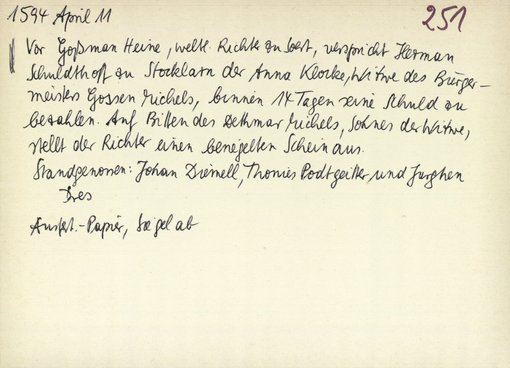 1594 April 11
251
Vor Goßman Heine, weltl. Richter zu Soest, verspricht Herman
Schuldthoff zu Stocklarn der Anna Klocke, Witwe des Bürger-
meisters Gossen Michels, binnen 14 Tagen seine Schuld zu
bezahlen. Auf Bitten des Dethmar Michels, Sohnes der Witwe,
stellt der Richter einen besiegelten Schein aus.
Standgenossen: Johan Diemell, Thonies Podtgeiter und Jurghen
Dres
Ausfert.-Papier, Siegel ab